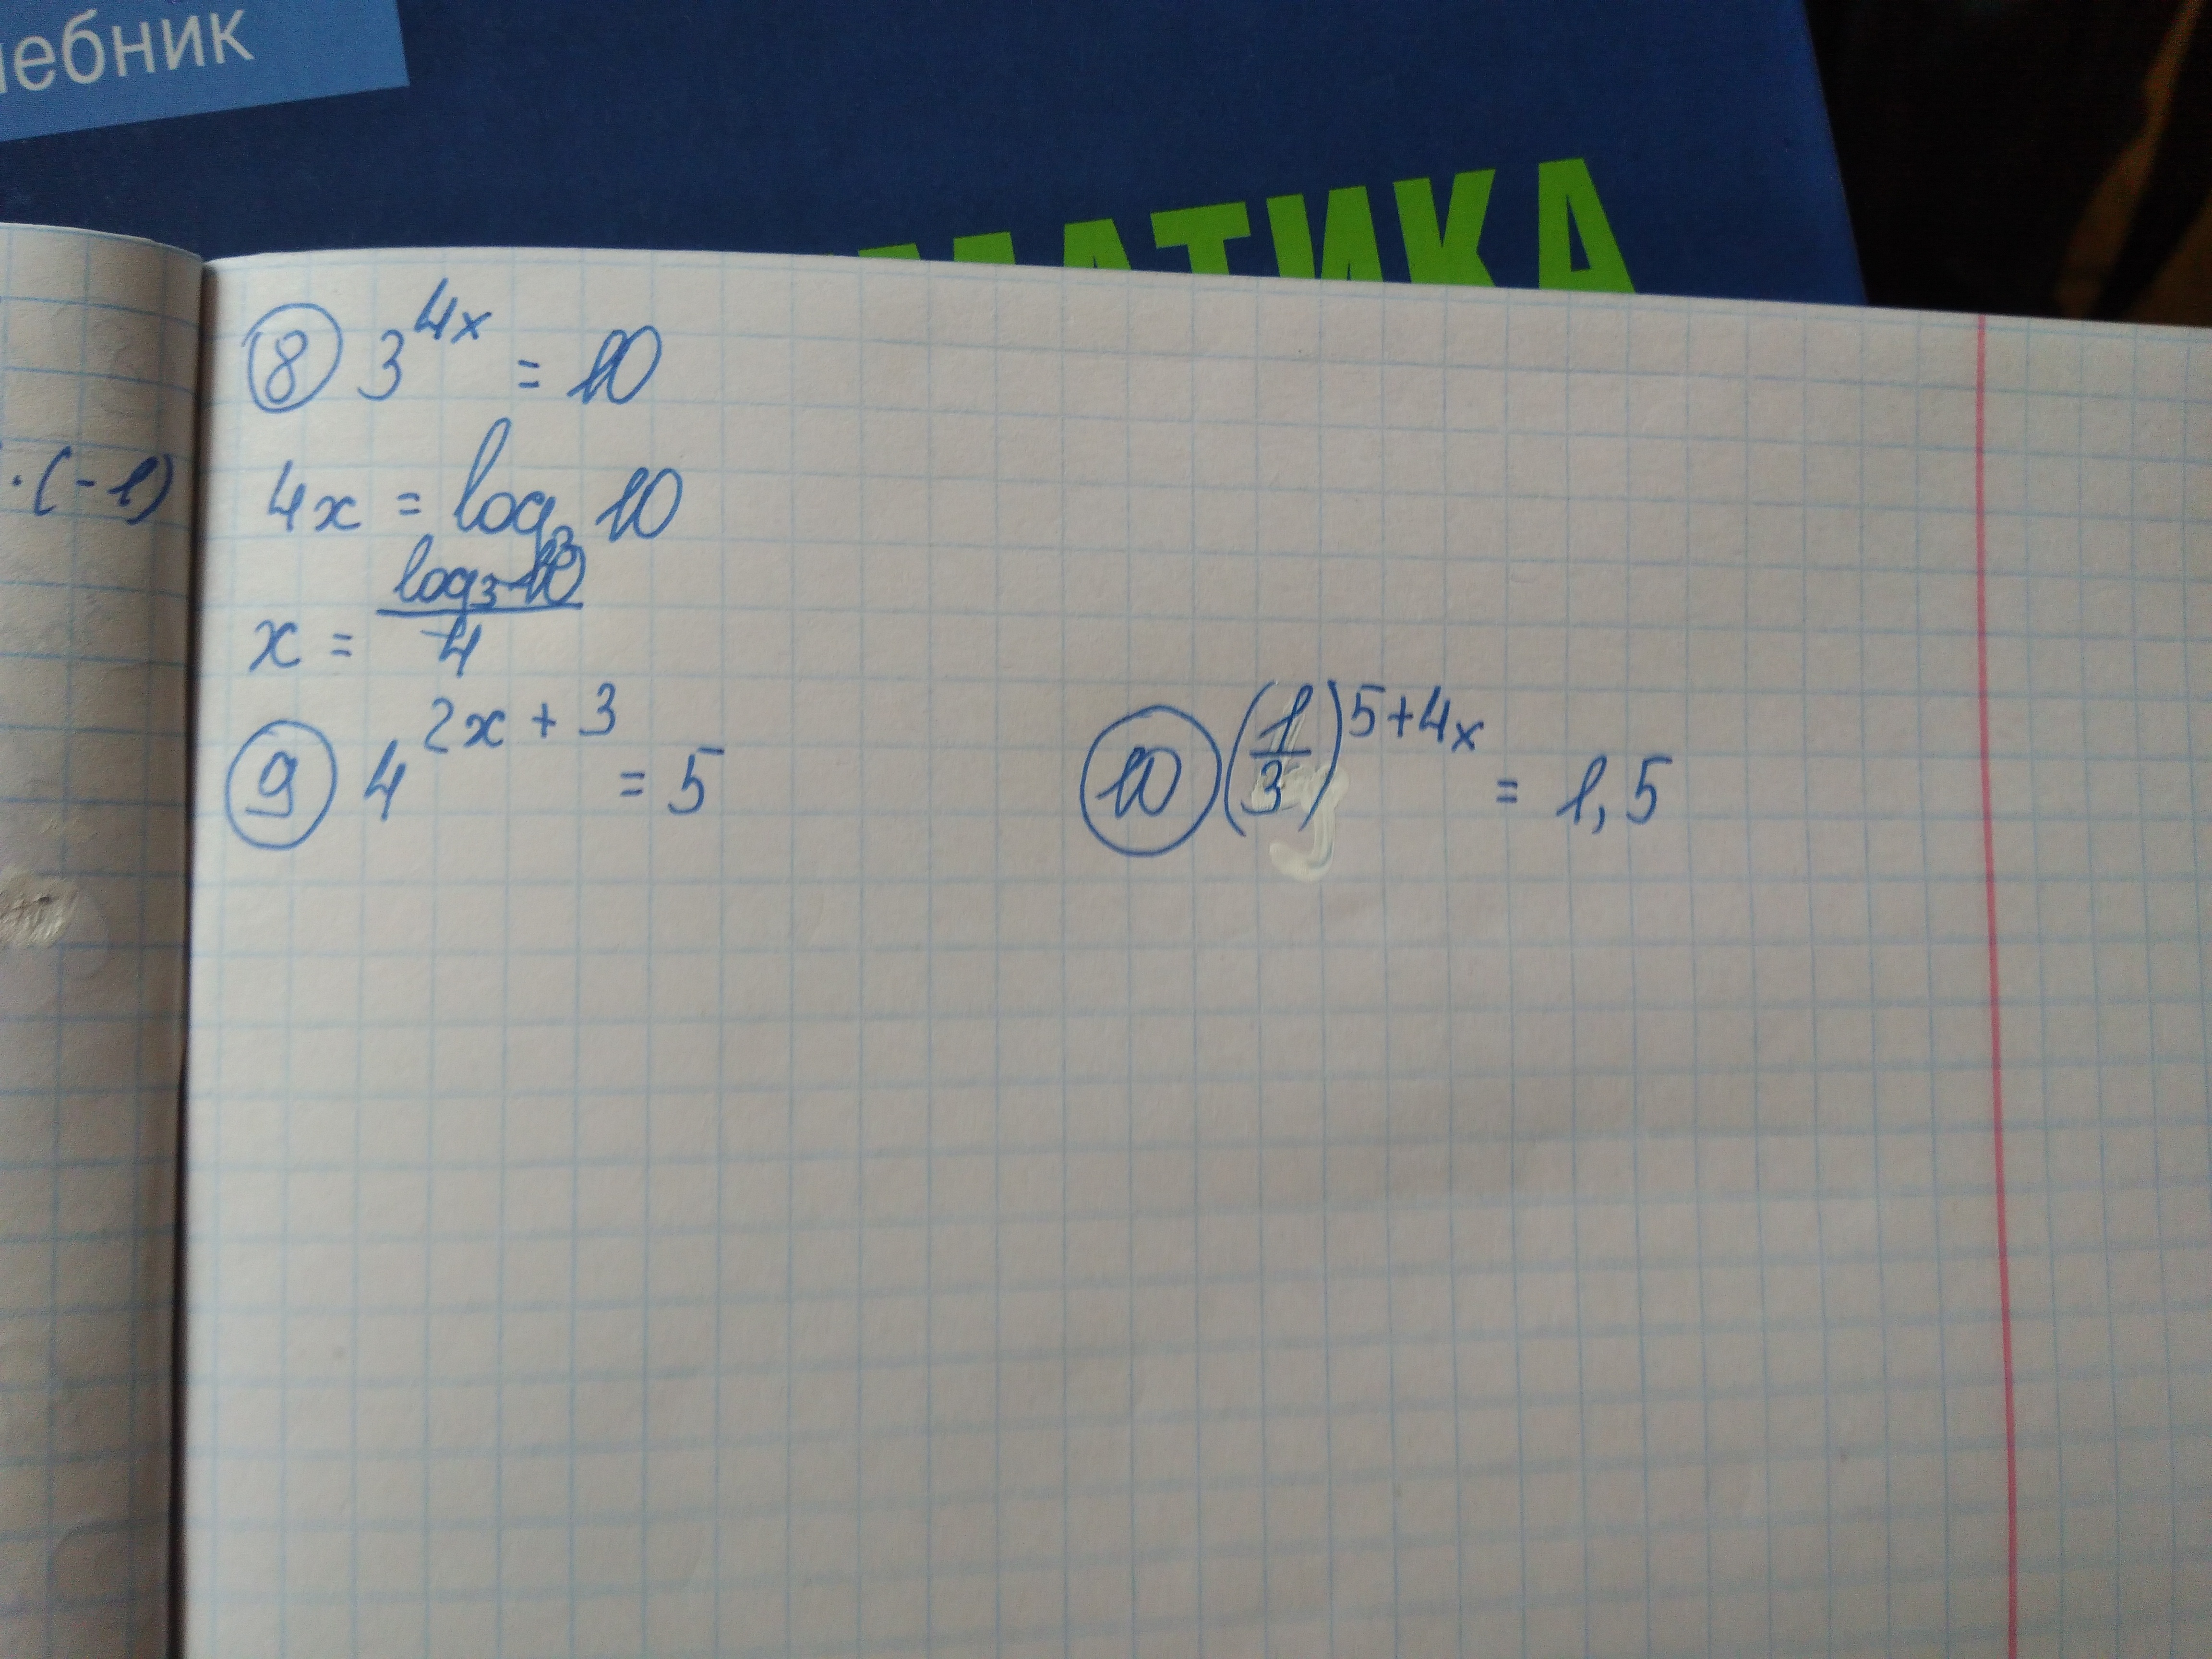 чебник
МАТИКА
·(-1)
⑧ 3^{4x} = 10
4x = log_3 10
x = \frac{log_3 10}{4}
⑨ 4^{2x + 3} = 5
⑩ (\frac{1}{3})^{5+4x} = 1,5